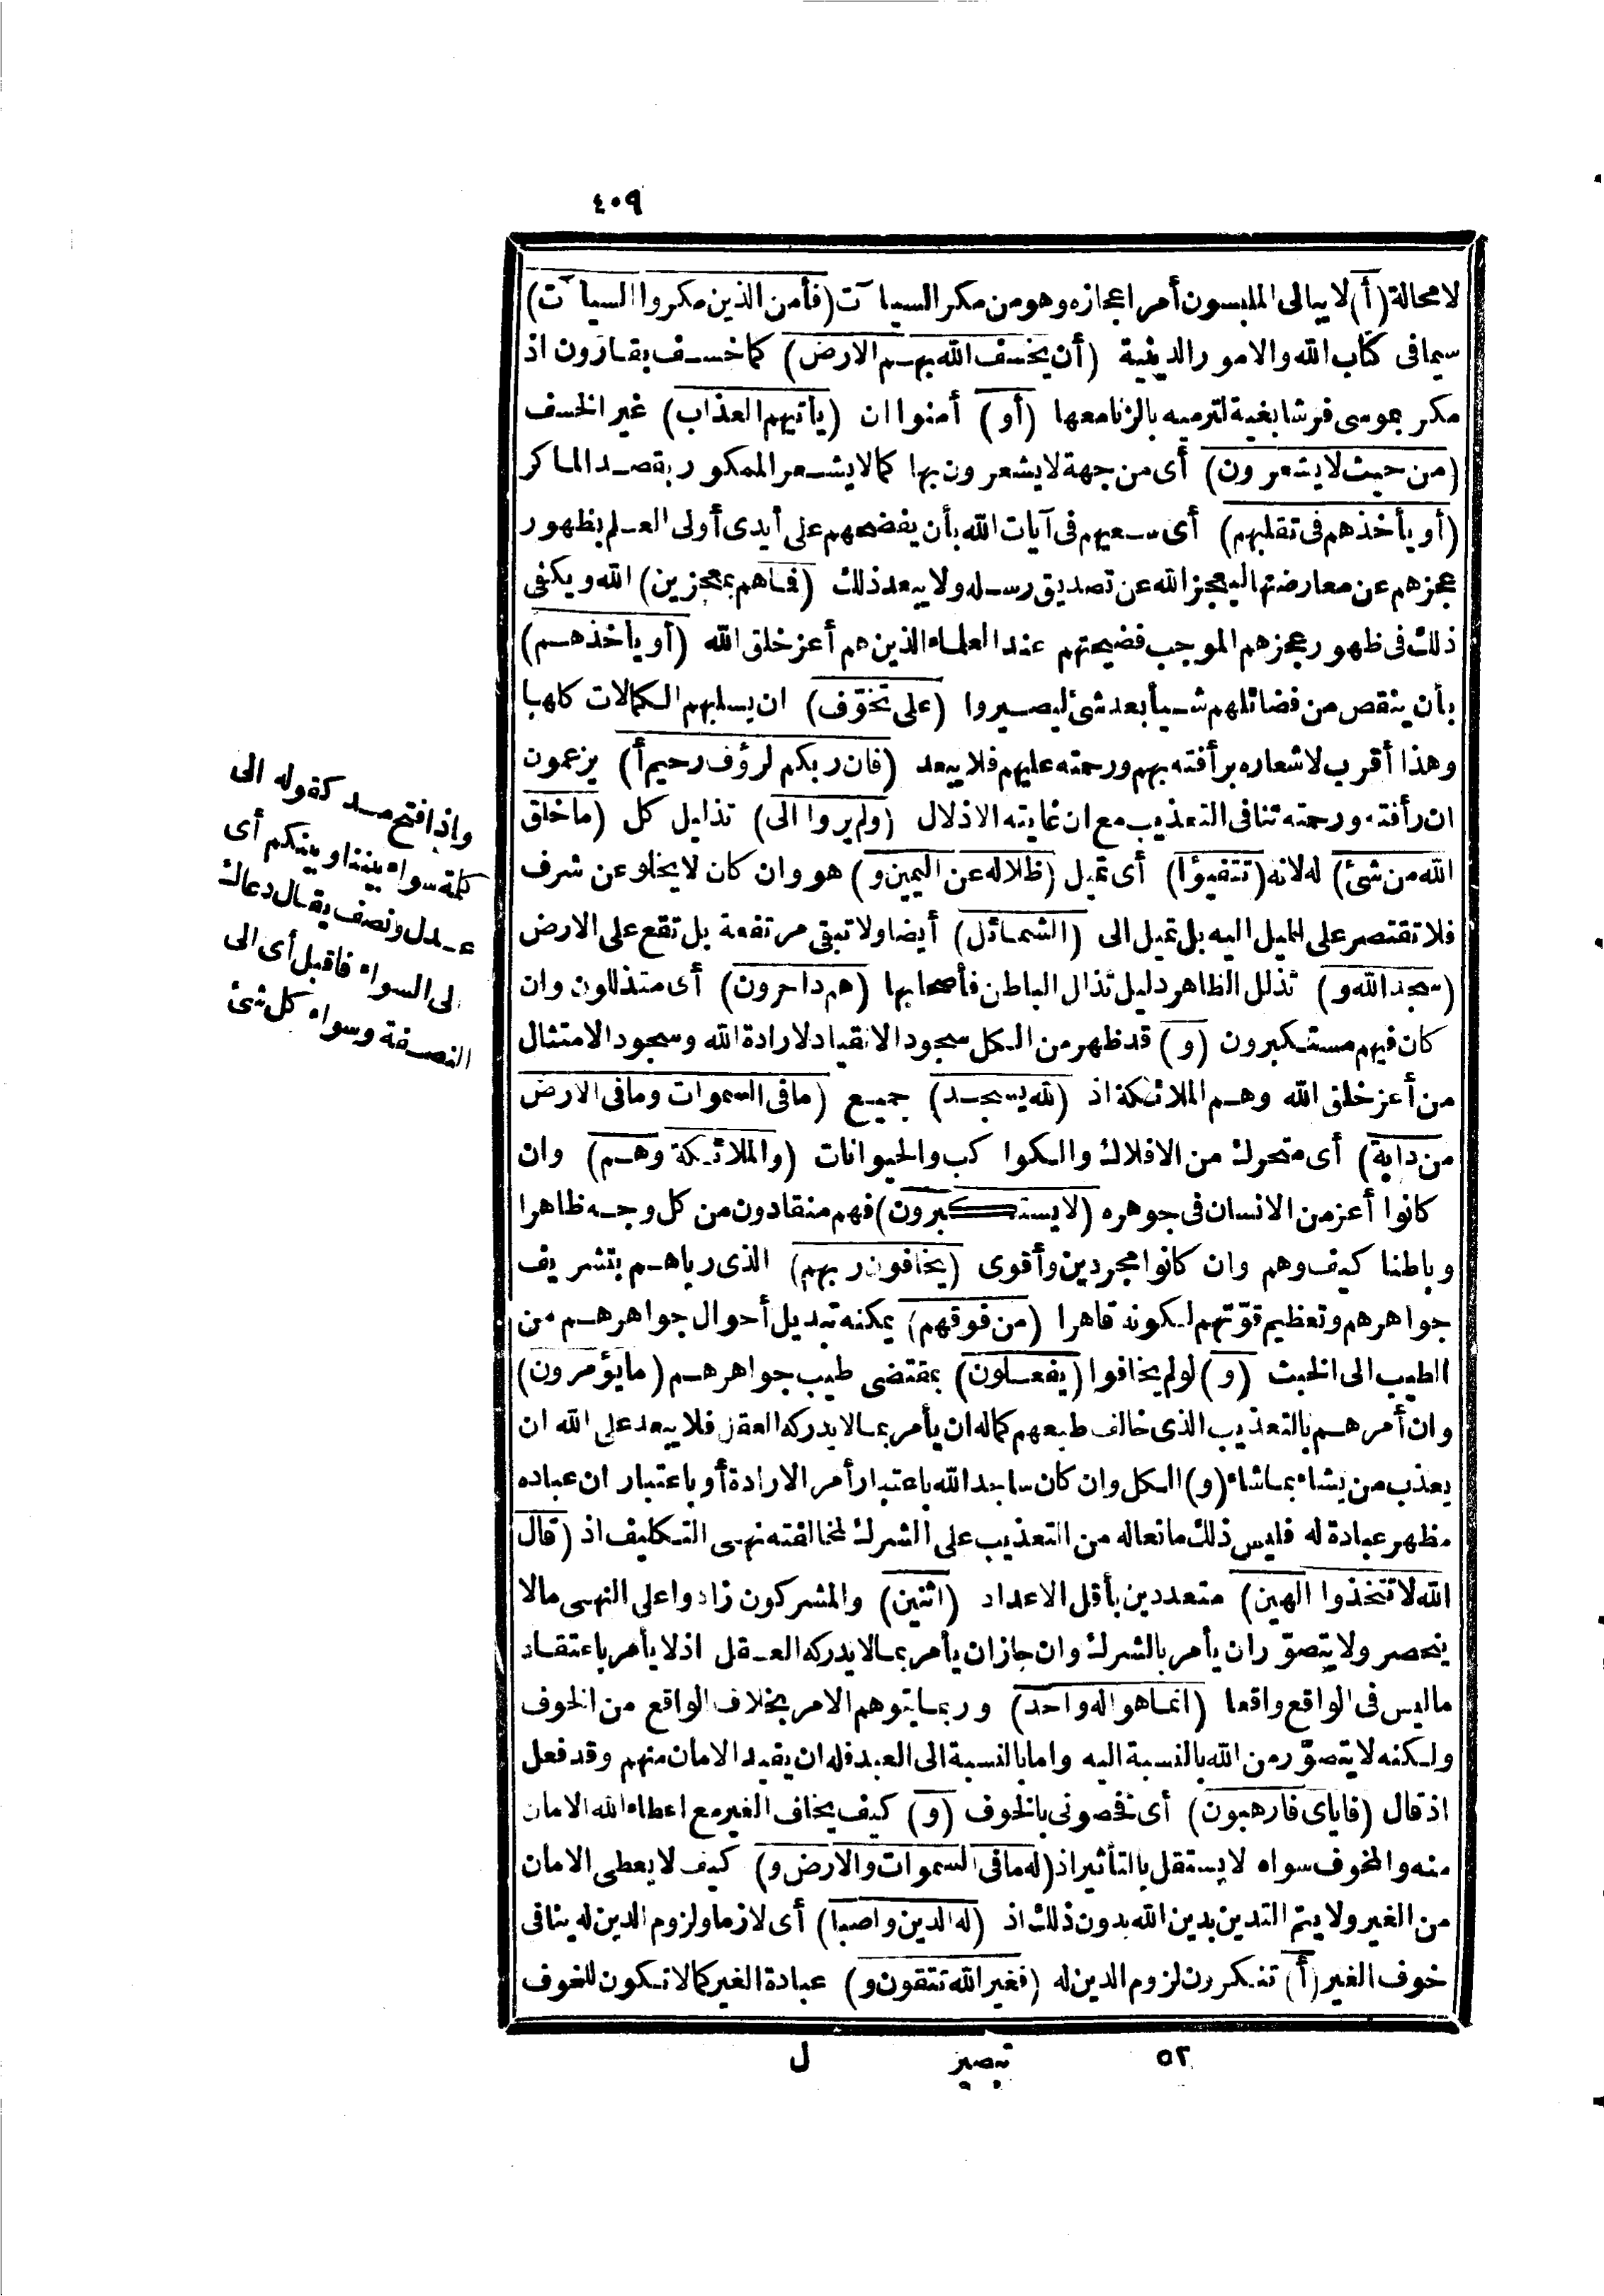 ٤٠٩
لا محالة (أ) لا يبالى الملبسون أمر اعجازه وهو من مكر السيا ٓت (فأمن الذين مكروا السيا ٓت)
سيما فى كتاب الله والامور الدينية (أن يخسف الله بهم الارض) كما خسف بقارون اذ
مكر بموسى فرشا بغية لترميه بالزنا معها (أو) أمنوا ان (يأتيهم العذاب) غير الخسف
(من حيث لا يشعرون) أى من جهة لا يشعرون بها كما لا يشعر الممكور بقصد الماكر
(أو يأخذهم فى تقلبهم) أى سعيهم فى آيات الله بأن يفضحهم على أيدى أولى العلم بظهور
عجزهم عن معارضتها ليعجز الله عن تصديق رسله ولا يبعد ذلك (فما هم بمعجزين) الله ويكفى
ذلك فى ظهور عجزهم الموجب فضيحتهم عند العلماء الذين هم أعز خلق الله (أو يأخذهم)
بأن ينقص من فضائلهم شيأ بعد شئ ليصيروا (على تخوّف) ان يسلبهم الكمالات كلها
وهذا أقرب لاشعاره برأفته بهم ورحمته عليهم فلا يبعد (فان ربكم لرؤف رحيم أ) يزعمون
ان رأفته ورحمته تنافى التعذيب مع ان غايته الاذلال (ولم يروا الى) تذليل كل (ما خلق
الله من شئ) له لانه (تتفيؤا) أى تميل (ظلاله عن اليمين و) هو وان كان لا يخلو عن شرف
فلا تقتصر على الميل اليه بل تميل الى (الشمائل) أيضا ولا تبقى مرتفعة بل تقع على الارض
(سجد الله و) تذلل الظاهر دليل تذلل الباطن فأصحابها (هم داخرون) أى متذللون وان
كان فيهم مستكبرون (و) قد ظهر من الكل سجود الانقياد لارادة الله وسجود الامتثال
من أعز خلق الله وهم الملائكة اذ (لله يسجد) جميع (ما فى السموات وما فى الارض
من دابة) أى متحرك من الافلاك والكواكب والحيوانات (والملائكة وهم) وان
كانوا أعز من الانسان فى جوهره (لا يستكبرون) فهم منقادون من كل وجه ظاهرا
وباطنا كيف وهم وان كانوا مجردين وأقوى (يخافون ربهم) الذى رباهم بتشريف
جواهرهم وتعظيم قوّتهم لكونه قاهرا (من فوقهم) يمكنه تبديل أحوال جواهرهم من
الطيب الى الخبث (و) لو لم يخافوا (يفعلون) بمقتضى طيب جواهرهم (ما يؤمرون)
وان أمرهم بالتعذيب الذى خالف طبعهم كما له ان يأمر بما لا يدركه العقل فلا يبعد على الله ان
يعذب من يشاء بما شاء (و) الكل وان كان ساجد الله باعتبار أمر الارادة أو باعتبار ان عباده
مظهر عبادة له فليس ذلك مانعا له من التعذيب على الشرك لمخالفته نهى التكليف اذ (قال
الله لا تتخذوا الهين) متعددين بأقل الاعداد (اثنين) والمشركون زادوا على النهى مالا
ينحصر ولا يتصوّر ان يأمر بالشرك وان جاز ان يأمر بما لا يدركه العقل اذ لا يأمر باعتقاد
ما ليس فى الواقع واقعا (انما هو اله واحد) وربما يتوهم الامر بخلاف الواقع من الخوف
ولكنه لا يتصوّر من الله بالنسبة اليه واما بالنسبة الى العبد فله ان يفيد الامان منهم وقد فعل
اذ قال (فاياى فارهبون) أى نخصونى بالخوف (و) كيف يخاف الغير مع اعطاء الله الامان
منه والمخوف سواه لا يستقل بالتأثير اذ (له ما فى السموات والارض و) كيف لا يعطى الامان
من الغير ولا يتم التدين بدين الله بدون ذلك اذ (له الدين واصبا) أى لازما ولزوم الدين له ينافى
خوف الغير (أ) تنكرون لزوم الدين له (فغير الله تتقون و) عبادة الغير كما لا تكون للخوف
واذا فتح مد كقوله الى
كلمة سواء بيننا وبينكم أى
عدل ونصف يقال دعاك
الى السواء فاقبل أى الى
النصفة وسواء كل شئ
٥٢ تبصير ل